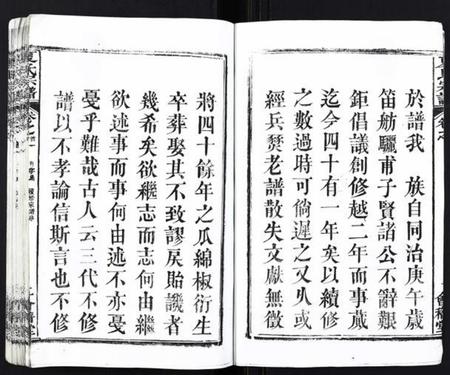 於譜我 族自同治庚午歲
笛舫驪甫子賢諸公不辭艱
鉅倡議創修越二年而事蕆
迄今四十有一年矣以續修
之數過時可倘遲之又久或
經兵燹老譜散失文獻無徵
將四十餘年之瓜綿椒衍生
卒葬娶其不致謬戾貽譏者
幾希矣欲繼志而志何由繼
欲述事而事何由述不亦戞
戞乎難哉古人云三代不修
譜以不孝論信斯言也不修
夏氏宗譜
卷之